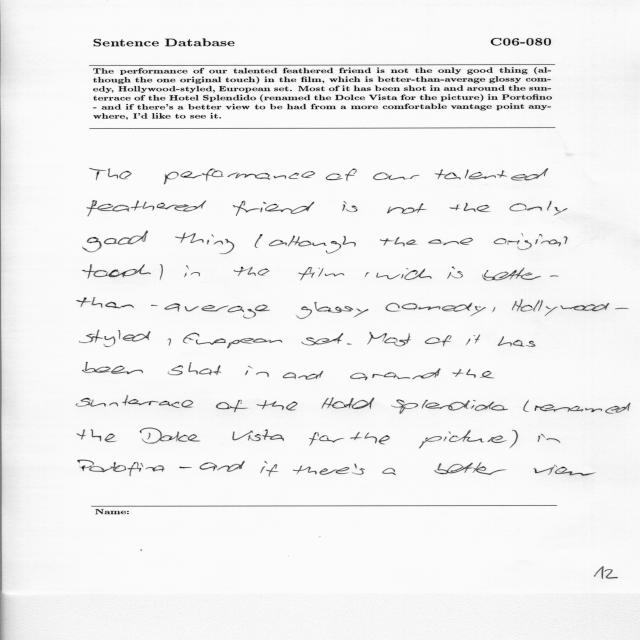 Sentence Database C06-080
The performance of our talented feathered friend is not the only good thing (al-
though the one original touch) in the film, which is better-than-average glossy com-
edy, Hollywood-styled, European set. Most of it has been shot in and around the sun-
terrace of the Hotel Splendido (renamed the Dolce Vista for the picture) in Portofino
- and if there's a better view to be had from a more comfortable vantage point any-
where, I'd like to see it.
The performance of our talented
feathered friend is not the only
good thing (although the one original
touch) in the film, wich is better-
than-average glossy comedy, Hollywood-
styled, European set. Most of it has
been shot in and around the
sunterrace of the Hotel Splendido (renamed
the Dolce Vista for the picture) in
Portofino - and if there's a better view
Name:
12